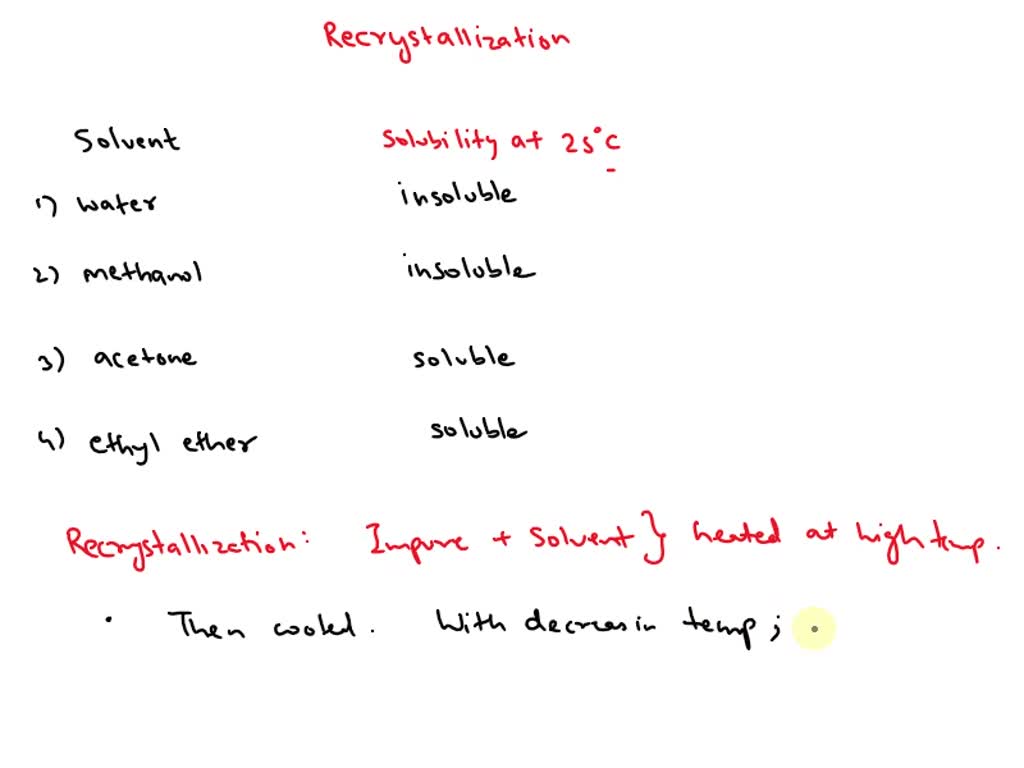 Recrystallization
Solvent Solubility at 25°C
1) water insoluble
2) methanol insoluble
3) acetone soluble
4) ethyl ether soluble
Recrystallization: Impure + Solvent } heated at high temp.
• Then cooled. With decreas in temp;